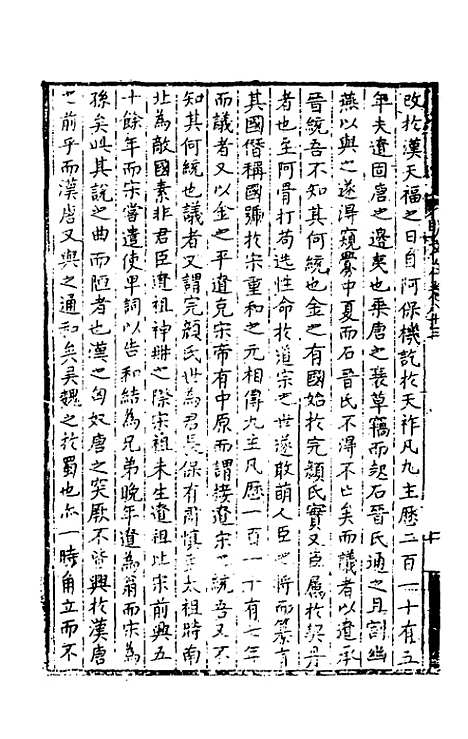 改於漢天福之日自阿保機訖於天祚凡九主歷二百一十有五
年夫遼固唐之邊夷也乗唐之衰草竊而起石晉氏通之且割幽
燕以與之遂得窺釁中夏而石晉氏不得不亡矣而議者以遼承
晉統吾不知其何統也金之有國始於完顔氏實又臣屬於契丹
者也至阿骨打苟逃性命於道宗之世遂敢萌人臣之將而簒有
其國僣稱國號於宋重和之元相傳九主凡歷一百一十有七年
而議者又以金之平遼克宋帝有中原而謂接遼宋之統吾又不
知其何統也議者又謂完顔氏世為君長保有肅慎至太祖時南
北為敵國素非君臣遼祖神冊之際宋祖未生遼祖比宋前興五
十餘年而宋嘗遣使卑詞以告和結為兄弟晚年遼為翁而宋為
孫矣此其說之曲而陋者也漢之匈奴唐之突厥不皆興於漢唐
之前乎而漢唐又與之通和矣吳魏之於蜀也亦一時角立而不